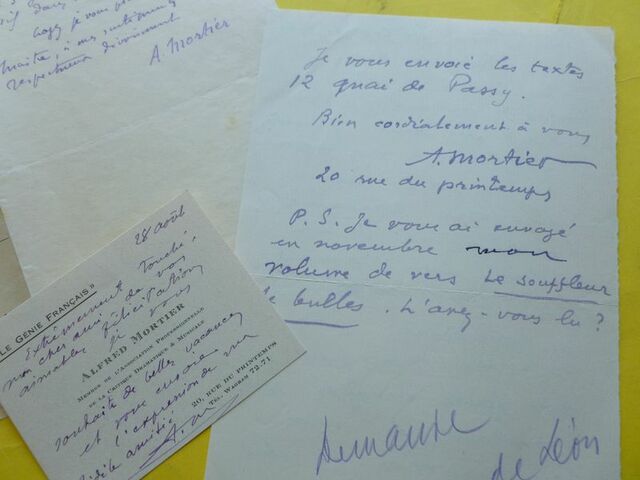 dans
je vous
A. Mortier
Je vous envoie les textes
12 quai de Passy.
Bien cordialement à vous
A. Mortier
20 rue du printemps
P.S. Je vous ai envoyé
en novembre mon
volume de vers Le souffleur
de bulles. L'avez-vous lu ?
Demande
de Léon
28 août
LE GÉNIE FRANÇAIS"
Extrêmement touché
mon cher ami de vos
aimables félicitations
je vous
ALFRED MORTIER
MEMBRE DE L'ASSOCIATION PROFESSIONNELLE
DE LA CRITIQUE DRAMATIQUE & MUSICALE
souhaite de belles vacances
et vous envoie
20, RUE DU PRINTEMPS
TÉL. WAGRAM 72-71
l'expression de ma
amitié